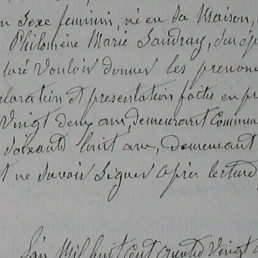 n Sexe feminin, né en sa maison,
Philomène Marie Landray, du cép
laré vouloir donner les prenom
claration et presentation faites en pré
Vingt deux ans, demeurant Commun
Soixante huit ans, demeurant
t ne savoir Signer après lecture
L'an Mil huit cent quatre Vingt